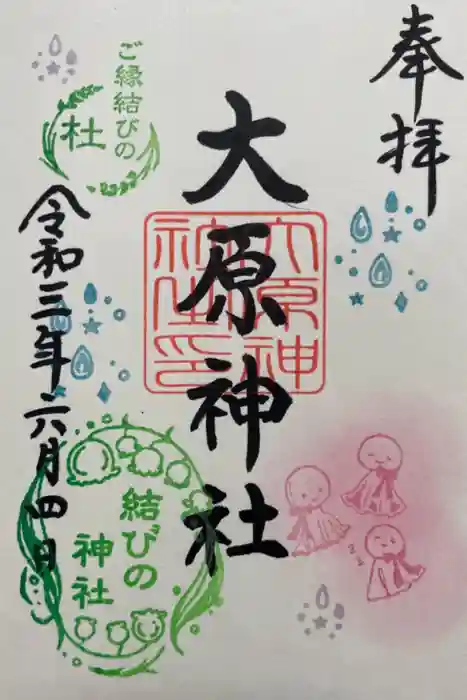 奉拝
大原神社
ご縁結びの
杜
令和三年六月四日
結びの
神社